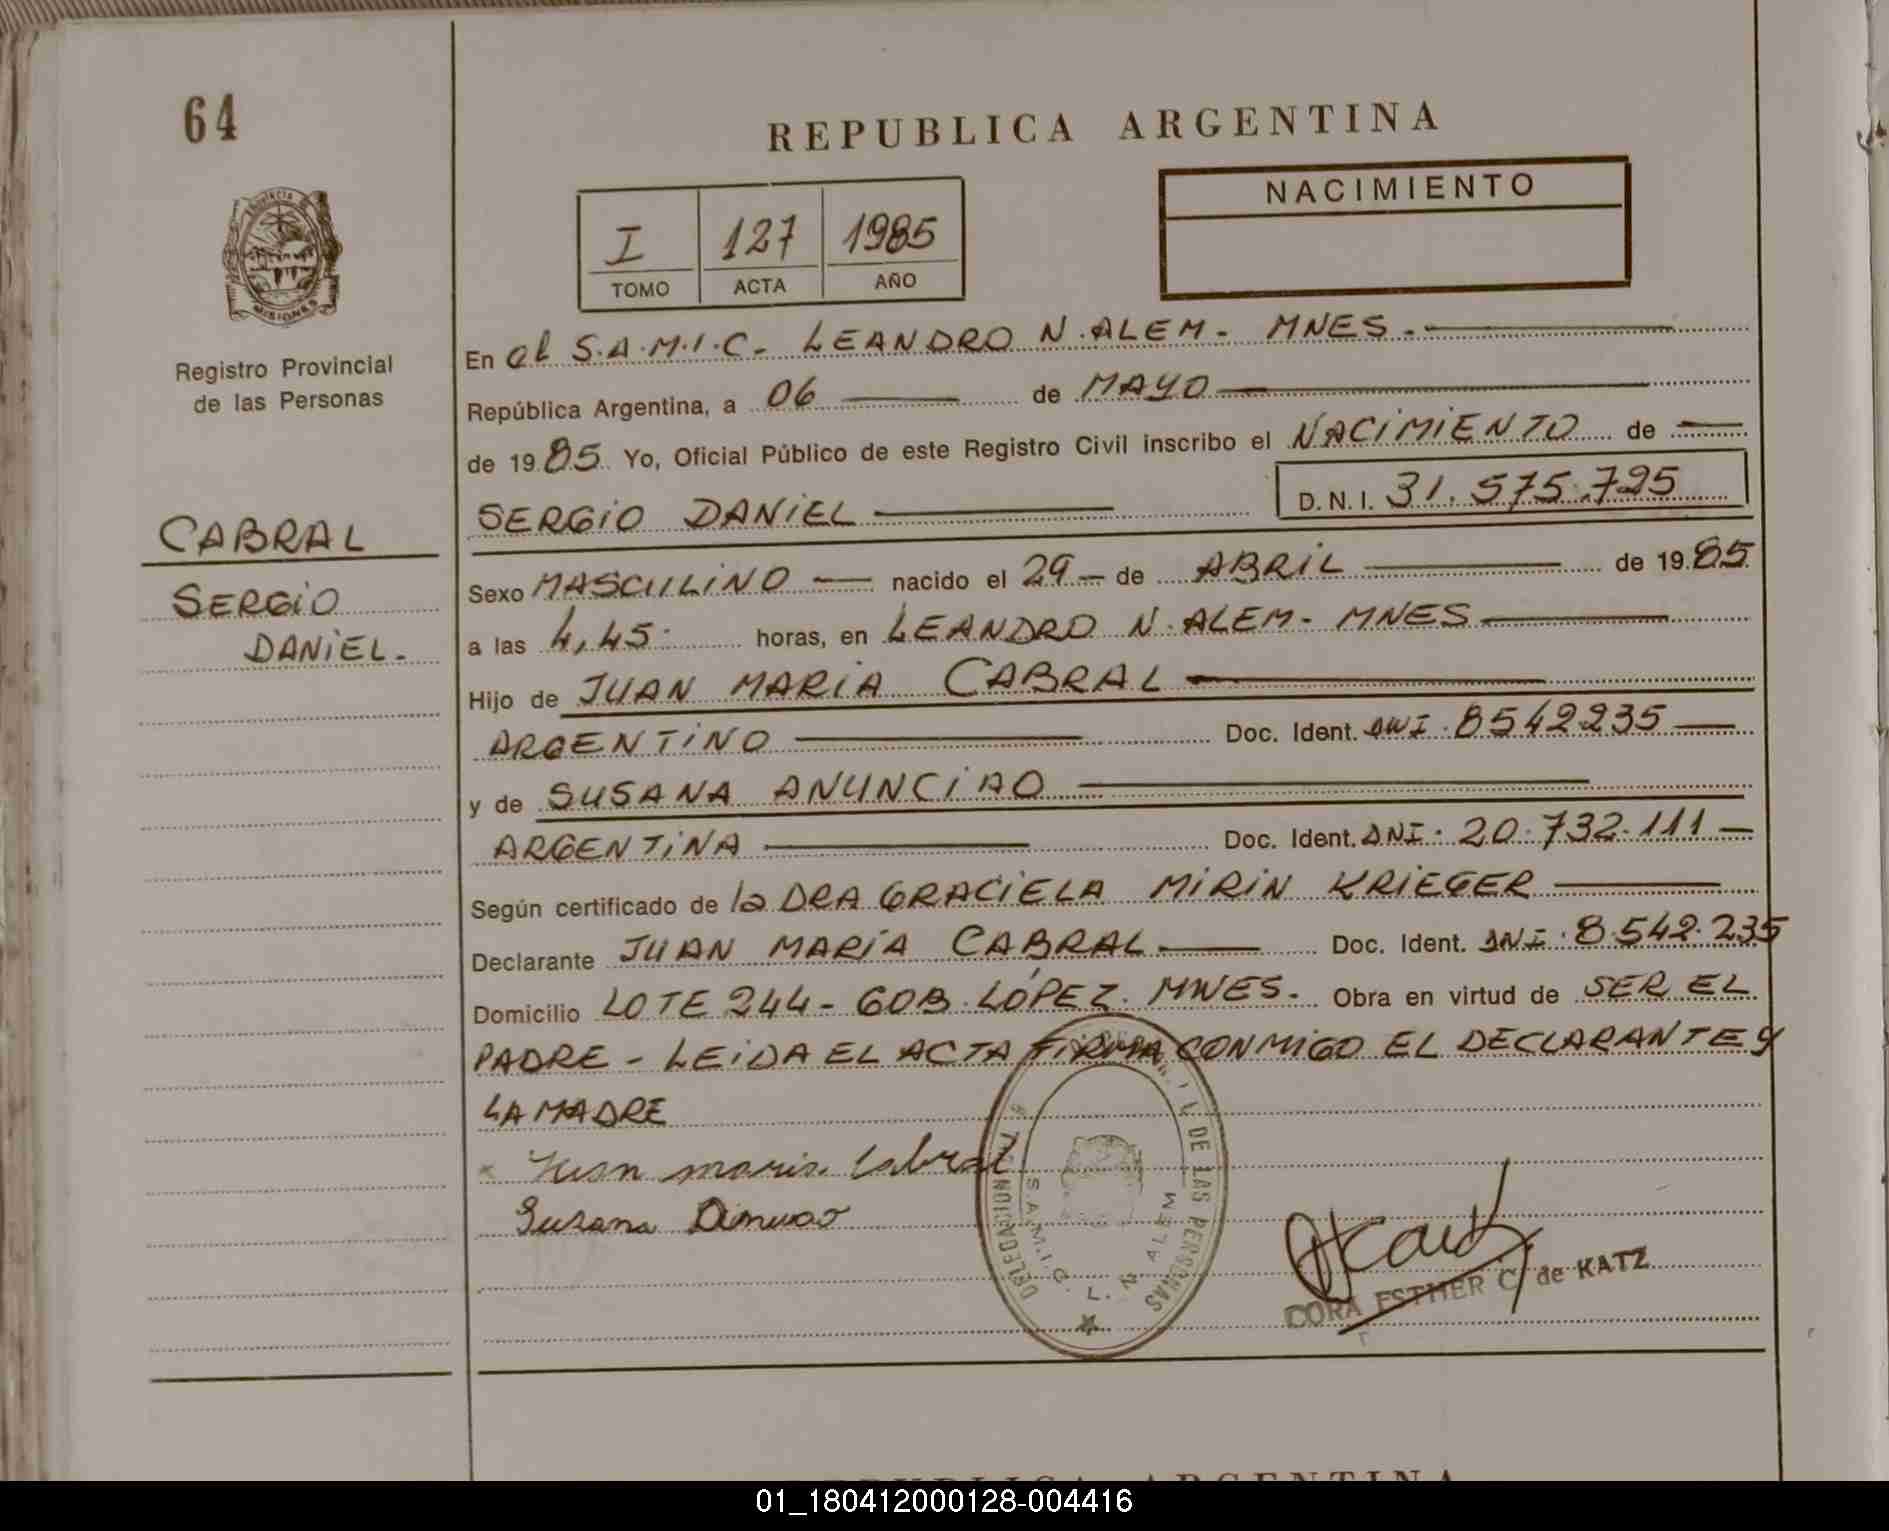 64
REPUBLICA ARGENTINA
NACIMIENTO
I 127 1985
TOMO ACTA AÑO
MISIONES
Registro Provincial
de las Personas
CABRAL
SERGIO
DANIEL.
En el S.A.M.I.C. LEANDRO N. ALEM - MNES.
República Argentina, a 06 de MAYO
de 1985 Yo, Oficial Público de este Registro Civil inscribo el NACIMIENTO de
SERGIO DANIEL D.N.I. 31.575.795
Sexo MASCULINO nacido el 29 de ABRIL de 1985
a las 4,45 horas, en LEANDRO N. ALEM - MNES
Hijo de JUAN MARIA CABRAL
ARGENTINO Doc. Ident. DNI. 8542235
y de SUSANA ANUNCIAO
ARGENTINA Doc. Ident. DNI. 20.732.111
Según certificado de la DRA GRACIELA MIRIN KRIEGER
Declarante JUAN MARÍA CABRAL Doc. Ident. DNI. 8.542.235
Domicilio LOTE 244 - GOB. LÓPEZ. MNES. Obra en virtud de SER EL
PADRE - LEIDA EL ACTA FIRMA CONMIGO EL DECLARANTE Y
LA MADRE
Juan maria Cabral
Susana
DELEGACION DE LAS PERSONAS
S.A.M.I.C. L. N. ALEM
CORA ESTHER C. de KATZ
REPUBLICA ARGENTINA
01_180412000128-004416